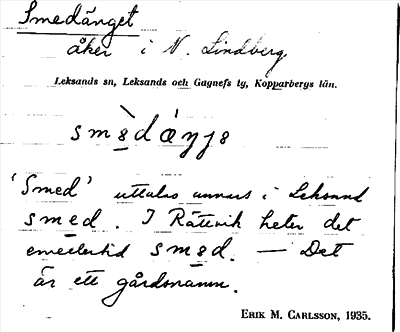 Smedänget
åker i N. Lindberg
Leksands sn, Leksands och Gagnefs ty, Kopparbergs län.
'Smed' uttalas annars i Leksand
smed. I Rättvik heter det
emellertid smed. — Det
är ett gårdsnamn.
ERIK M. CARLSSON, 1935.